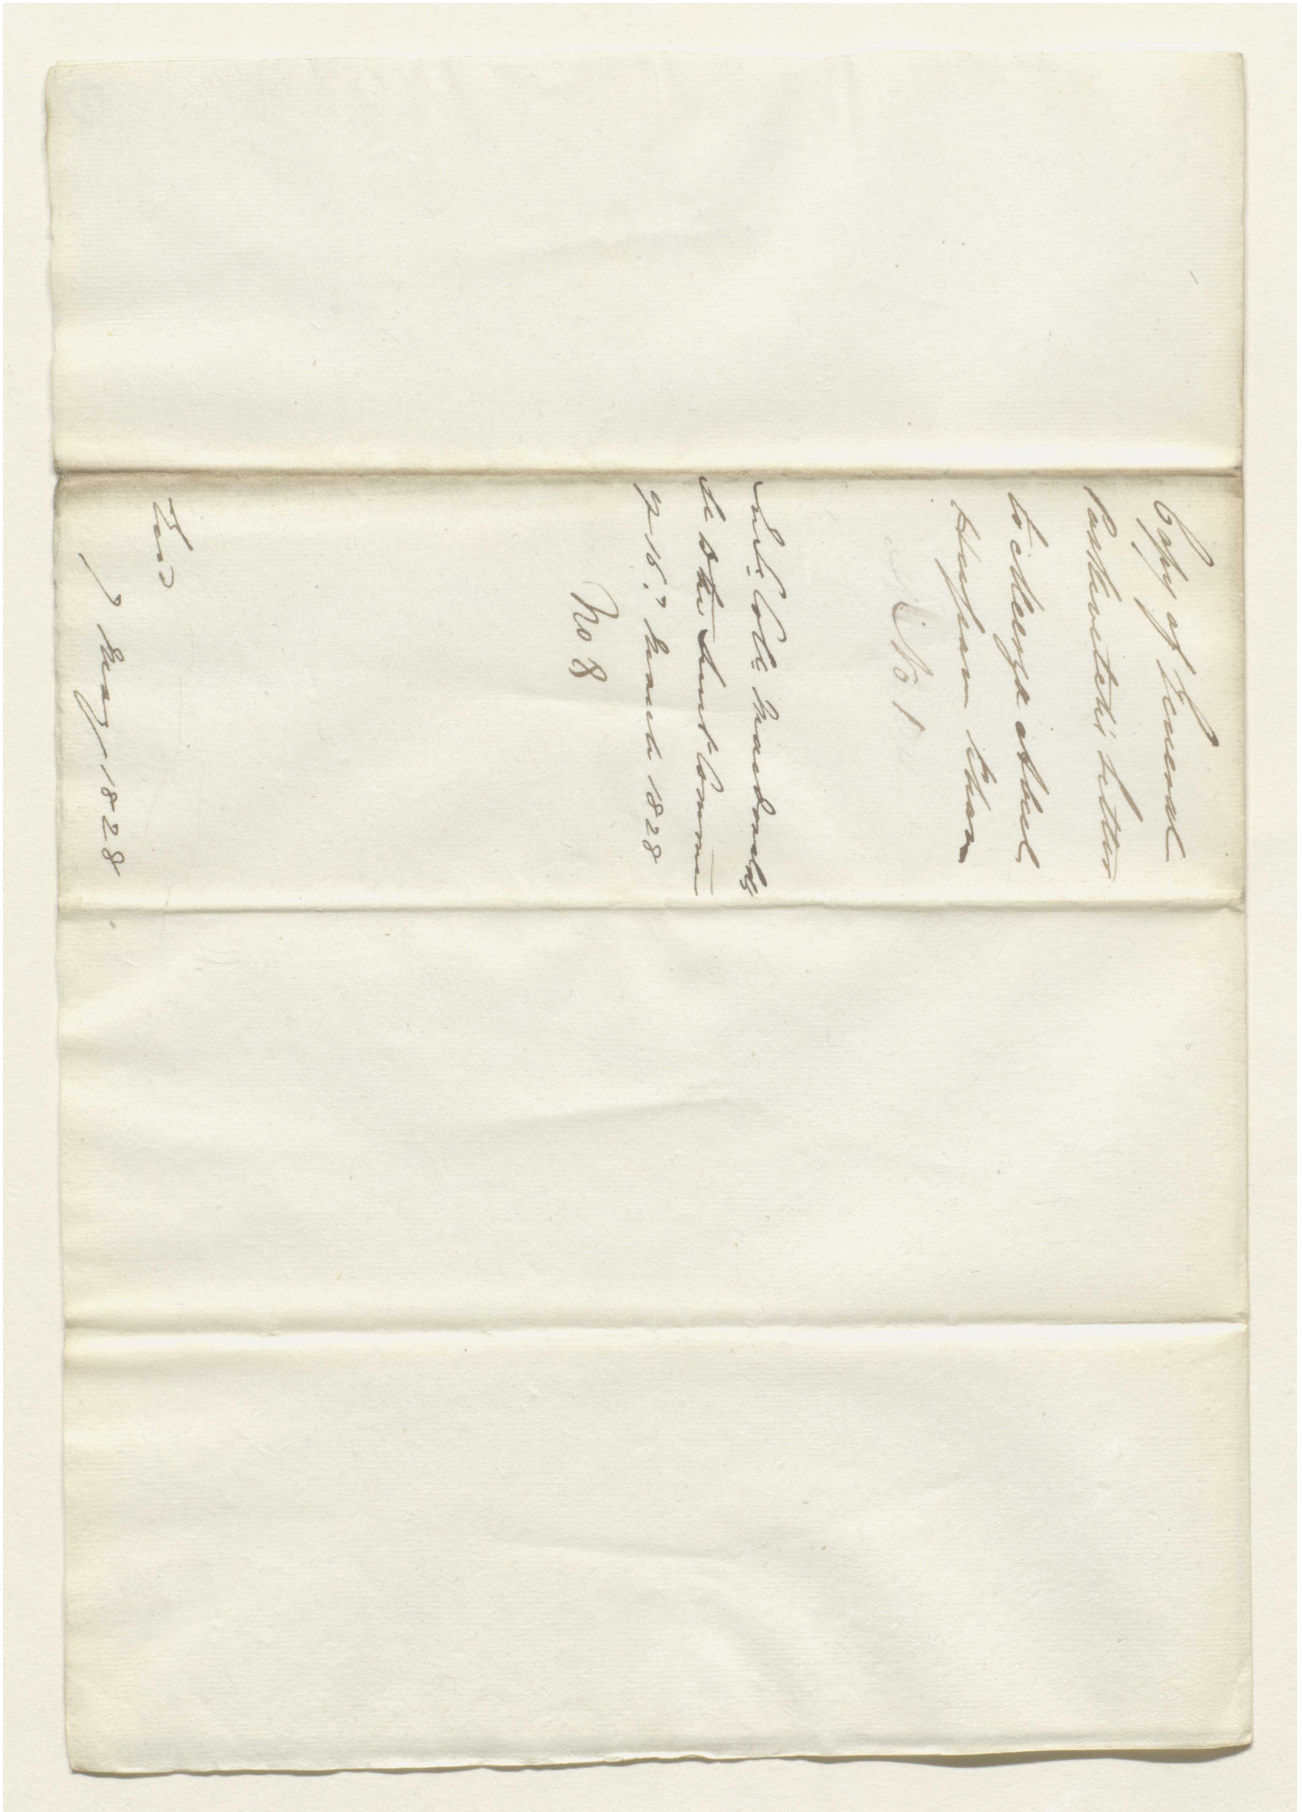 Copy of General
Paskevitch's letter
to Meerza Abul
Hussan Khan
A No 1
In Lt. Col. Macdonald's
to the Secret Comm.
of 15. March 1828
No 8
7 May 1828